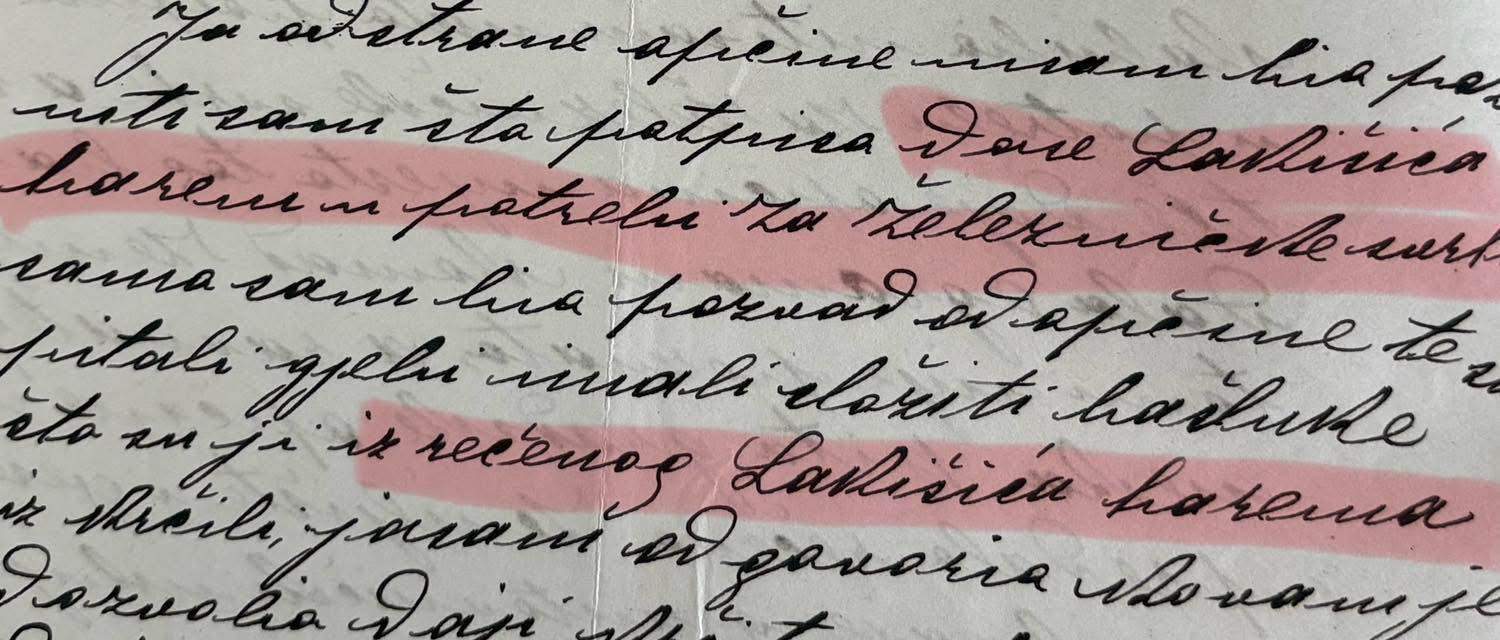 Ja od strane opčine nisam bia poz
niti sam šta potpisa dase Lakišića
harem u potrebi za željezničke svrh
samo sam bia pozvad od opčine te su
pitali gjebi imali složiti bašluke
što su ji iz rečenog Lakišića harema
iz krčili, jasam od govoria kovam je
dozvolia daji